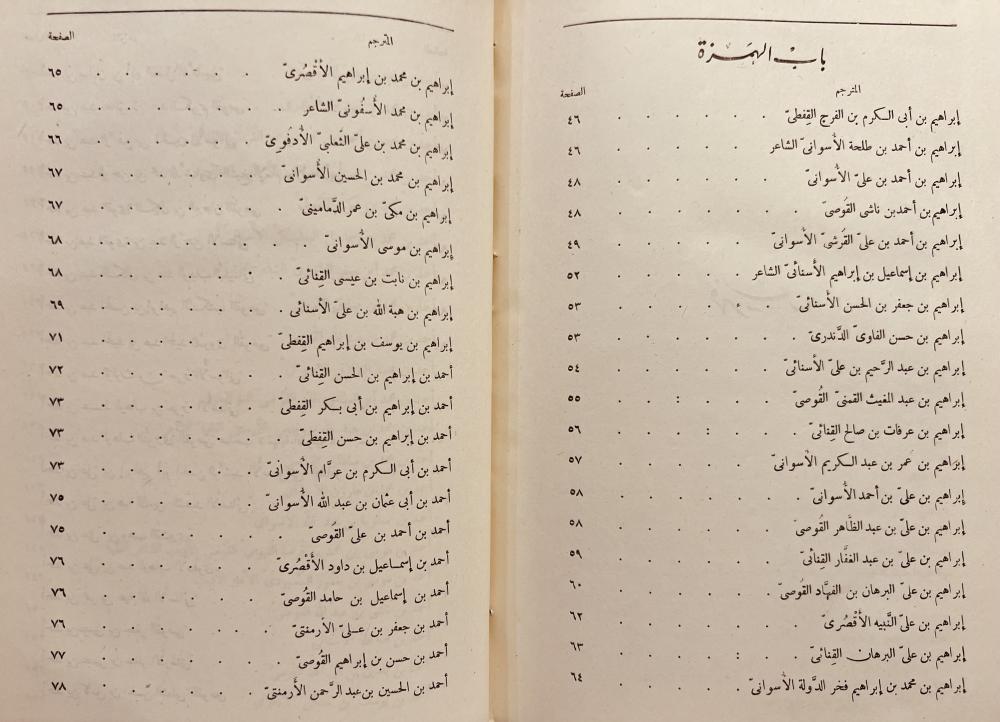 باب الهمزة
المترجم الصفحة
إبراهيم بن أبى الكرم بن الفرج القِفطىّ . . . . . . ٤٦
إبراهيم بن أحمد بن طلحة الأسوانىّ الشاعر . . . . . . ٤٦
إبراهيم بن أحمد بن علىّ الأسوانىّ . . . . . . ٤٨
إبراهيم بن أحمد بن ناشى القُوصىّ . . . . . . ٤٨
إبراهيم بن أحمد بن علىّ القرشىّ الأسوانىّ . . . . . ٤٩
إبراهيم بن إسماعيل بن إبراهيم الأسنائىّ الشاعر . . . . . ٥٢
إبراهيم بن جعفر بن الحسن الأسنائىّ . . . . . . ٥٣
إبراهيم بن حسن الفاوىّ الدَّندرىّ . . . . . . ٥٣
إبراهيم بن عبد الرَّحيم بن علىّ الأسنائىّ . . . . . ٥٤
إبراهيم بن عبد المغيث القمنىّ القُوصىّ . . . : . . ٥٥
إبراهيم بن عرفات بن صالح القِنائىّ . . . : . . ٥٦
إبراهيم بن عمر بن عبد الكريم الأسوانىّ . . . . . ٥٧
إبراهيم بن علىّ بن أحمد الأسوانىّ . . . . . . ٥٨
إبراهيم بن علىّ بن عبد الظَّاهر القُوصىّ . . . . . . ٥٨
إبراهيم بن علىّ بن عبد الغفَّار القِنائىّ . . . . . ٥٩
إبراهيم بن علىّ البرهان بن الفهَّاد القُوصىّ . . . . . ٦٠
إبراهيم بن علىّ النَّبيه الأقْصُرىّ . . . . . . ٦٢
إبراهيم بن علىّ البرهان القِنائىّ . . : . . . ٦٣
إبراهيم بن محمد بن إبراهيم فخر الدَّولة الأسوانىّ . . . . . ٦٤
المترجم الصفحة
إبراهيم بن محمد بن إبراهيم الأقْصُرىّ . . . . . . ٦٥
إبراهيم بن محمد الأُسفُونىّ الشاعر . . . . . . ٦٥
إبراهيم بن محمد بن علىّ الثَّعلبىّ الأُدفُوىّ . . . . . . ٦٦
إبراهيم بن محمد بن الحسين الأسوانىّ . . . . . . ٦٧
إبراهيم بن مكىّ بن عمر الدَّمامينىّ . . . . . . ٦٧
إبراهيم بن موسى الأسوانىّ . . . . . . . ٦٨
إبراهيم بن نابت بن عيسى القِنائىّ . . . . . . ٦٨
إبراهيم بن هبة الله بن علىّ الأسنائى . . . . . . ٦٩
إبراهيم بن يوسف بن إبراهيم القِفطىّ . . . . . . ٧١
أحمد بن إبراهيم بن الحسن القِنائىّ . . . . . . ٧٢
أحمد بن إبراهيم بن أبى بكر القِفطىّ . . . . . . ٧٣
أحمد بن إبراهيم بن حسن القِفطىّ . . . . . . ٧٣
أحمد بن أبى الكرم بن عرَّام الأسوانىّ . . . . . . ٧٣
أحمد بن أبى عثمان بن عبد الله الأسوانىّ . . . . . . ٧٥
أحمد بن أحمد بن علىّ القُوصىّ . . . . . . ٧٥
أحمد بن إسماعيل بن داود الأقْصُرىّ . . . . . . ٧٦
أحمد بن إسماعيل بن حامد القُوصىّ . . . . . . ٧٦
أحمد بن جعفر بن علىّ الأرمنتىّ . . . . . . ٧٦
أحمد بن حسن بن إبراهيم القُوصىّ . . . . . . ٧٧
أحمد بن الحسين بن عبد الرَّحمن الأرمنتىّ . . . . . . ٧٨